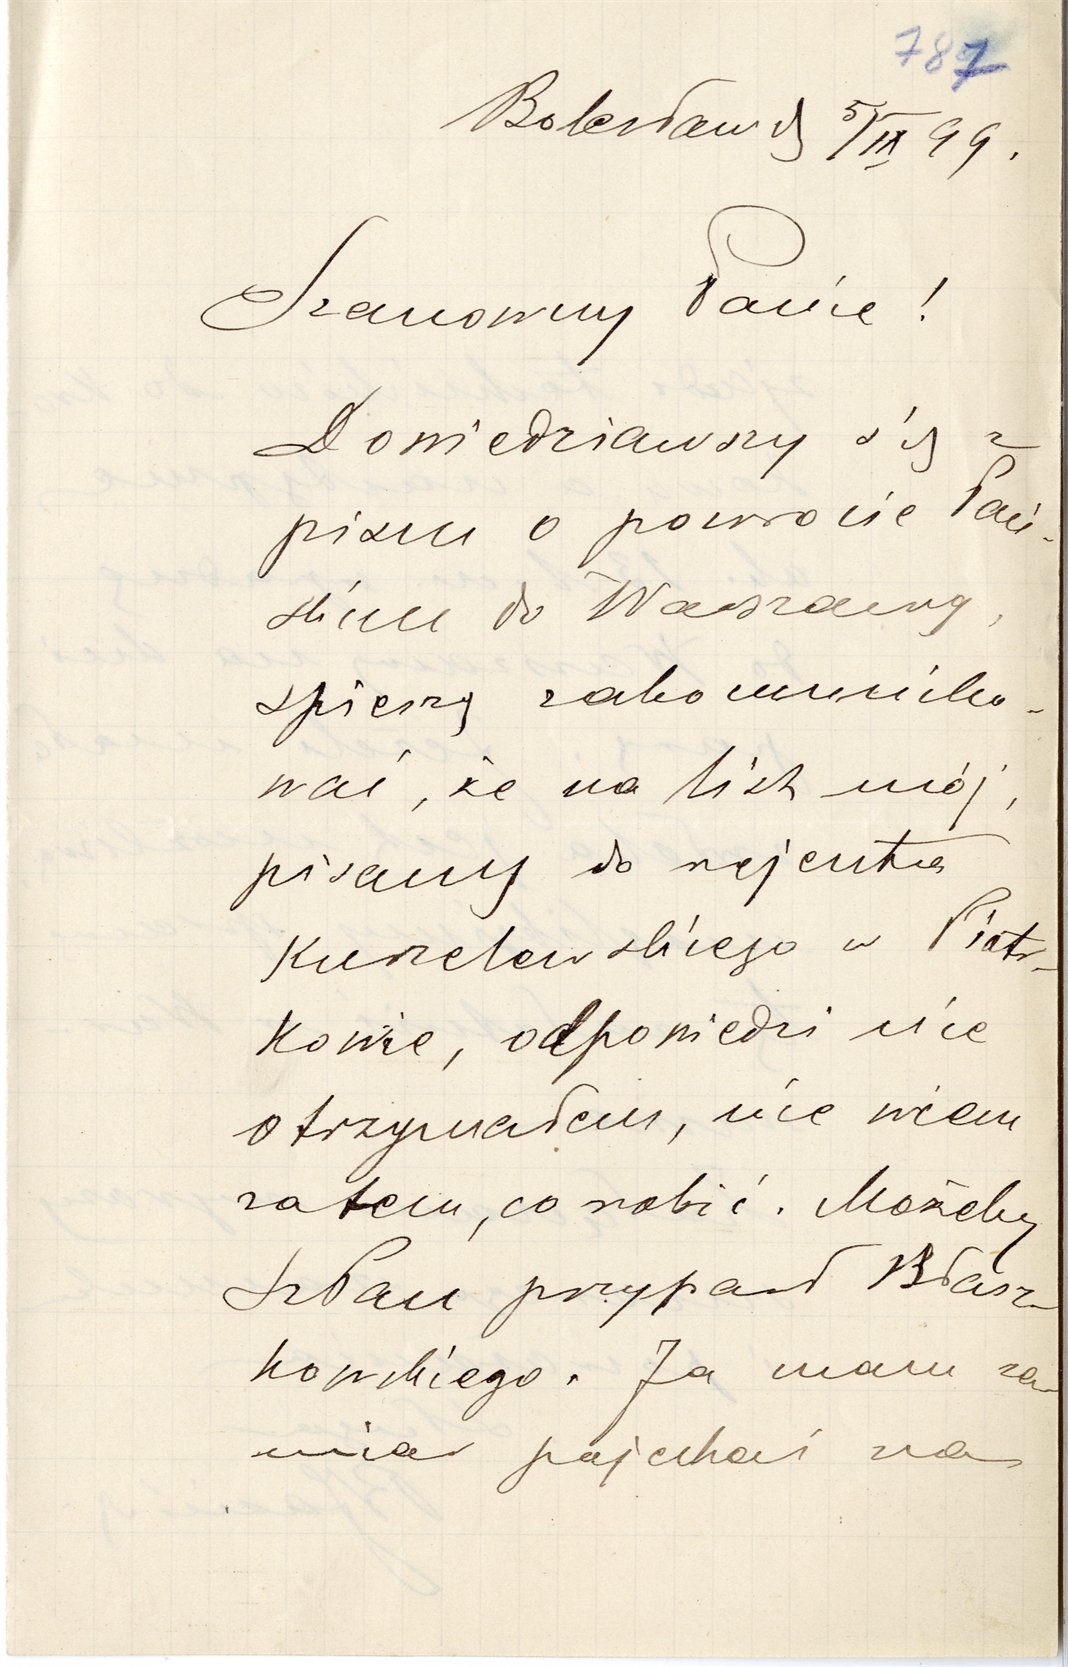 787
Bolesław d 5/IX 99.
Szanowny Panie!
Dowiedziawszy się z
pism o powrocie Pań-
skim do Warszawy,
spieszę zakomuniko-
wać, że na list mój,
pisany do rejenta
Kurzelewskiego w Piotr-
kowie, odpowiedzi nie
otrzymałem, nie wiem
zatem, co robić. Możeby
Sz Pan przyparł Błasz-
kowskiego. Ja mam za-
miar pojechać na